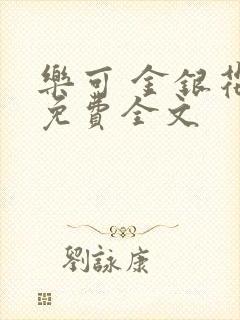 樂可 金銀花
免費全文
劉詠康